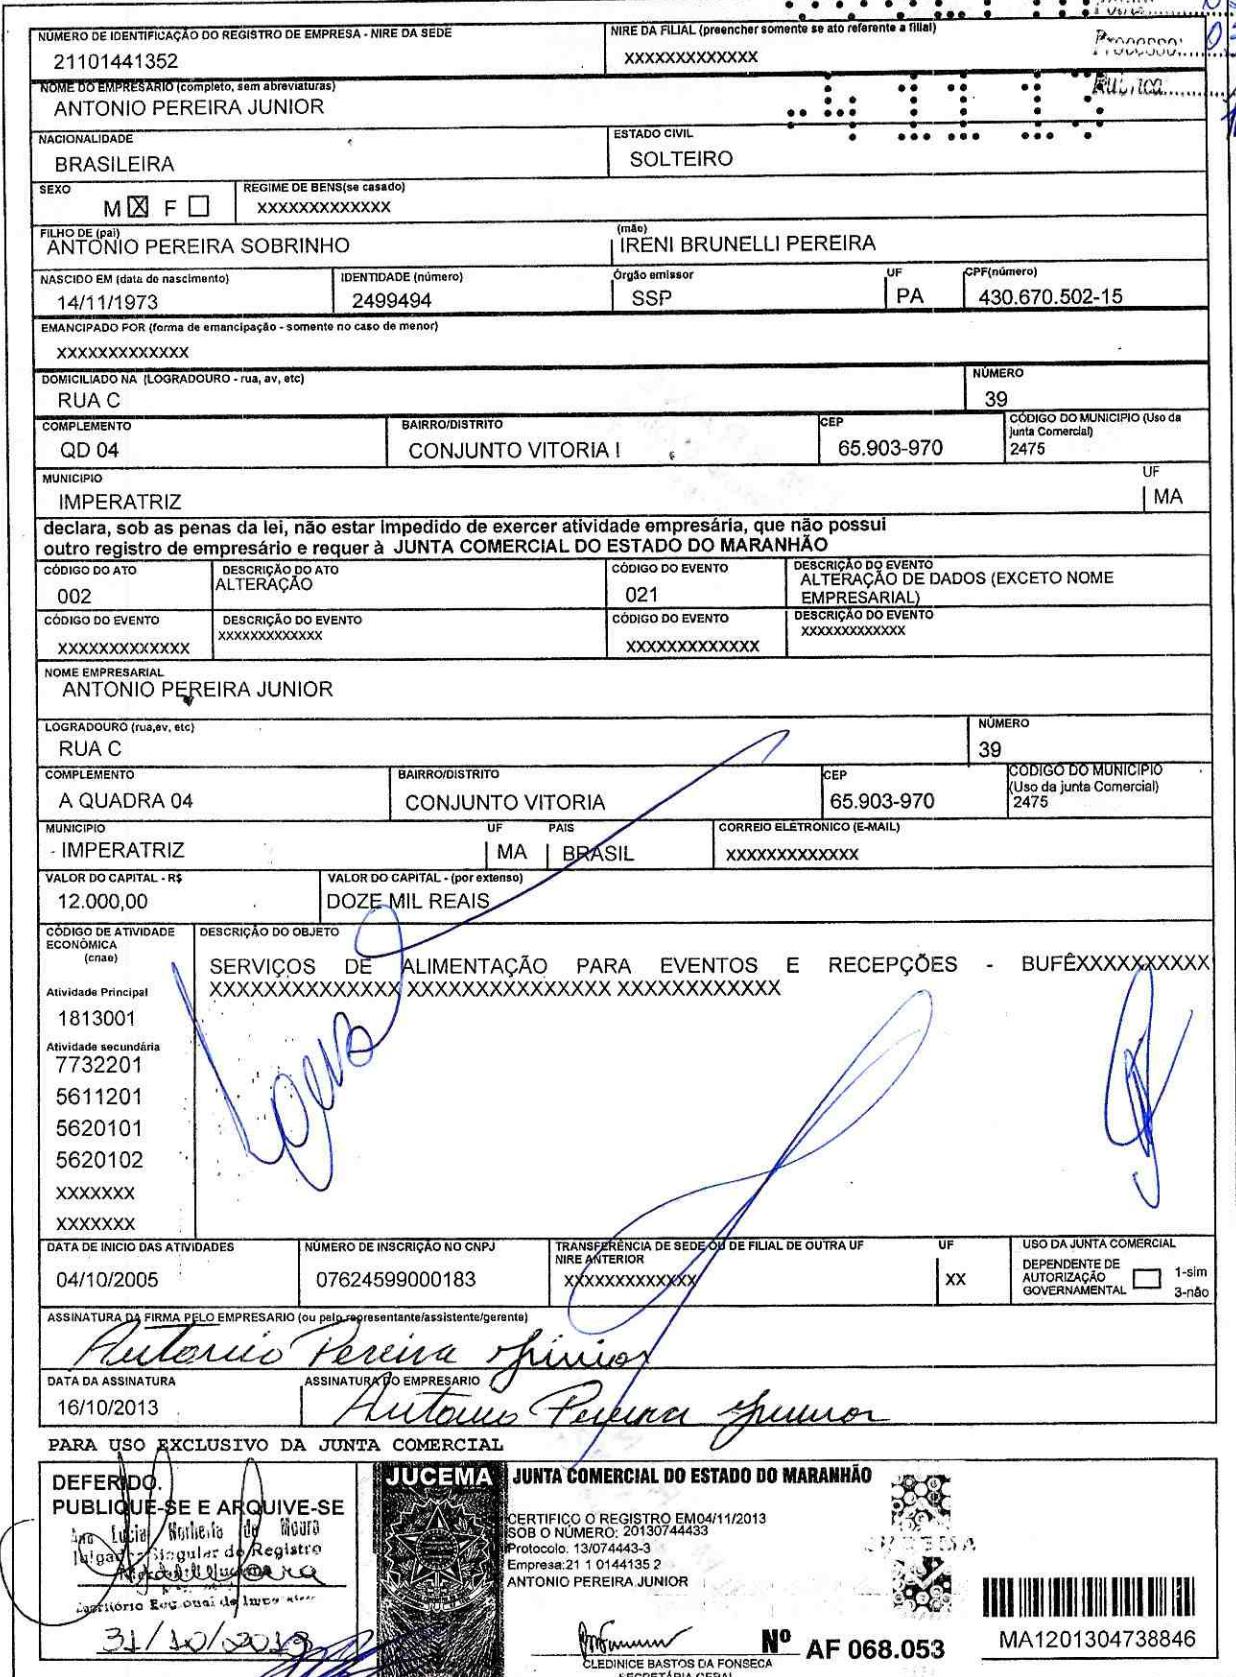 Processo:
Rubrica
NÚMERO DE IDENTIFICAÇÃO DO REGISTRO DE EMPRESA - NIRE DA SEDE
21101441352
NIRE DA FILIAL (preencher somente se ato referente a filial)
XXXXXXXXXXXXX
NOME DO EMPRESÁRIO (completo, sem abreviaturas)
ANTONIO PEREIRA JUNIOR
NACIONALIDADE
BRASILEIRA
ESTADO CIVIL
SOLTEIRO
SEXO
M ☒ F ☐
REGIME DE BENS(se casado)
XXXXXXXXXXXXX
FILHO DE (pai)
ANTONIO PEREIRA SOBRINHO
(mão)
IRENI BRUNELLI PEREIRA
NASCIDO EM (data do nascimento)
14/11/1973
IDENTIDADE (número)
2499494
Órgão emissor
SSP
UF
PA
CPF(número)
430.670.502-15
EMANCIPADO POR (forma de emancipação - somente no caso de menor)
XXXXXXXXXXXXX
DOMICILIADO NA (LOGRADOURO - rua, av, etc)
RUA C
NÚMERO
39
COMPLEMENTO
QD 04
BAIRRO/DISTRITO
CONJUNTO VITORIA I
CEP
65.903-970
CÓDIGO DO MUNICIPIO (Uso da junta Comercial)
2475
MUNICIPIO
IMPERATRIZ
UF
MA
declara, sob as penas da lei, não estar impedido de exercer atividade empresária, que não possui
outro registro de empresário e requer à JUNTA COMERCIAL DO ESTADO DO MARANHÃO
CÓDIGO DO ATO
002
DESCRIÇÃO DO ATO
ALTERAÇÃO
CÓDIGO DO EVENTO
021
DESCRIÇÃO DO EVENTO
ALTERAÇÃO DE DADOS (EXCETO NOME
EMPRESARIAL)
CÓDIGO DO EVENTO
XXXXXXXXXXXXX
DESCRIÇÃO DO EVENTO
XXXXXXXXXXXXX
CÓDIGO DO EVENTO
XXXXXXXXXXXXX
DESCRIÇÃO DO EVENTO
XXXXXXXXXXXXX
NOME EMPRESARIAL
ANTONIO PEREIRA JUNIOR
LOGRADOURO (rua,av, etc)
RUA C
NÚMERO
39
COMPLEMENTO
A QUADRA 04
BAIRRO/DISTRITO
CONJUNTO VITORIA
CEP
65.903-970
CÓDIGO DO MUNICIPIO
(Uso da junta Comercial)
2475
MUNICIPIO
IMPERATRIZ
UF
MA
PAIS
BRASIL
CORREIO ELETRONICO (E-MAIL)
XXXXXXXXXXXXX
VALOR DO CAPITAL - R$
12.000,00
VALOR DO CAPITAL - (por extenso)
DOZE MIL REAIS
CÓDIGO DE ATIVIDADE
ECONÔMICA
(cnae)
Atividade Principal
1813001
Atividade secundária
7732201
5611201
5620101
5620102
XXXXXXX
XXXXXXX
DESCRIÇÃO DO OBJETO
SERVIÇOS DE ALIMENTAÇÃO PARA EVENTOS E RECEPÇÕES - BUFÊXXXXXXXXXX
XXXXXXXXXXXXXX XXXXXXXXXXXXXXX XXXXXXXXXXXX
DATA DE INICIO DAS ATIVIDADES
04/10/2005
NÚMERO DE INSCRIÇÃO NO CNPJ
07624599000183
TRANSFERÊNCIA DE SEDE OU DE FILIAL DE OUTRA UF
NIRE ANTERIOR
XXXXXXXXXXXXX
UF
XX
USO DA JUNTA COMERCIAL
DEPENDENTE DE
AUTORIZAÇÃO
GOVERNAMENTAL
1-sim
3-não
ASSINATURA DA FIRMA PELO EMPRESARIO (ou pelo representante/assistente/gerente)
Antonio Pereira Junior
DATA DA ASSINATURA
16/10/2013
ASSINATURA DO EMPRESARIO
Antonio Pereira Junior
PARA USO EXCLUSIVO DA JUNTA COMERCIAL
DEFERIDO.
PUBLIQUE-SE E ARQUIVE-SE
Ana Lucia Norberto de Moura
Julgador Singular de Registro
31/10/2013
JUCEMA
JUNTA COMERCIAL DO ESTADO DO MARANHÃO
CERTIFICO O REGISTRO EM04/11/2013
SOB O NÚMERO: 20130744433
Protocolo: 13/074443-3
Empresa:21 1 0144135 2
ANTONIO PEREIRA JUNIOR
CLEDINICE BASTOS DA FONSECA
SECRETÁRIA GERAL
Nº AF 068.053
MA1201304738846